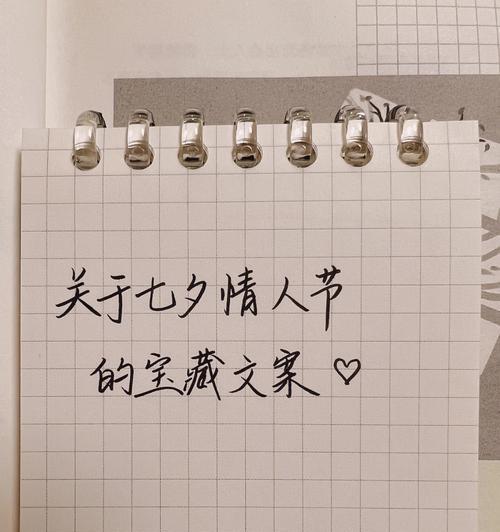 关于七夕情人节
的宝藏文案♡